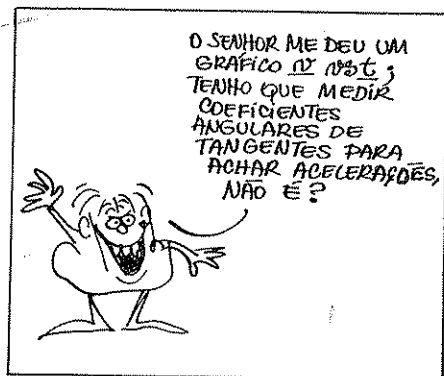 O SENHOR ME DEU UM
GRÁFICO v vs t;
TENHO QUE MEDIR
COEFICIENTES
ANGULARES DE
TANGENTES PARA
ACHAR ACELERAÇÕES,
NÃO É?